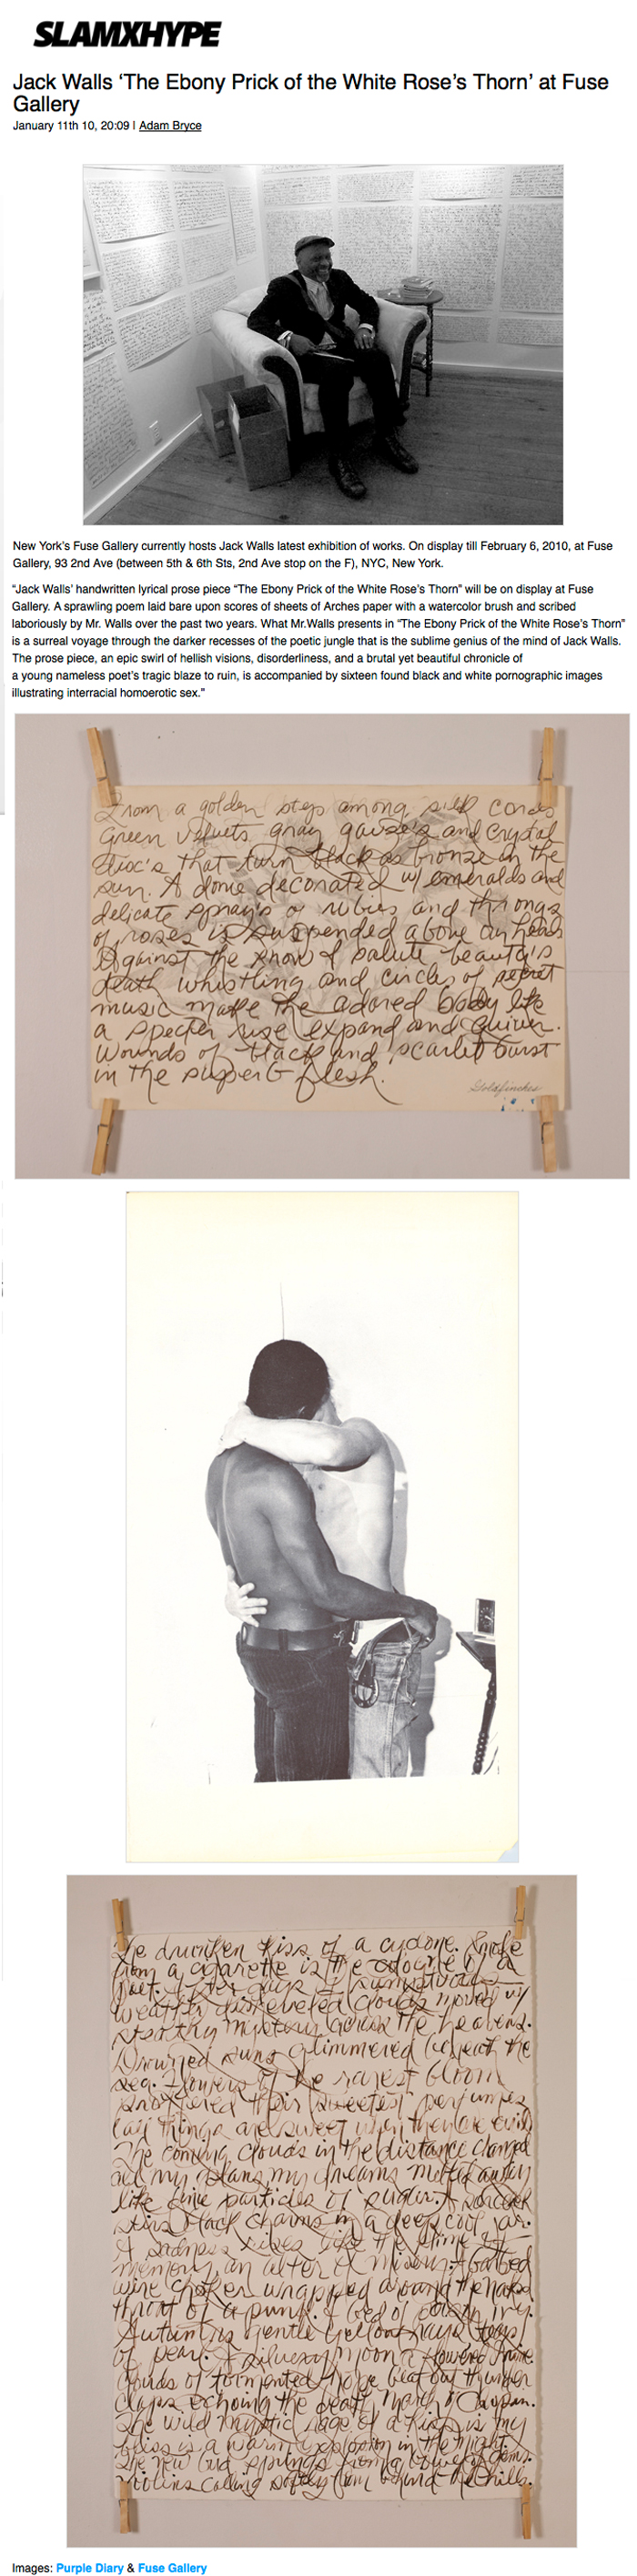 SLAMXHYPE
Jack Walls ‘The Ebony Prick of the White Rose’s Thorn’ at Fuse
Gallery
January 11th 10, 20:09 | Adam Bryce
New York’s Fuse Gallery currently hosts Jack Walls latest exhibition of works. On display till February 6, 2010, at Fuse
Gallery, 93 2nd Ave (between 5th & 6th Sts, 2nd Ave stop on the F), NYC, New York.
“Jack Walls’ handwritten lyrical prose piece “The Ebony Prick of the White Rose’s Thorn” will be on display at Fuse
Gallery. A sprawling poem laid bare upon scores of sheets of Arches paper with a watercolor brush and scribed
laboriously by Mr. Walls over the past two years. What Mr.Walls presents in “The Ebony Prick of the White Rose’s Thorn”
is a surreal voyage through the darker recesses of the poetic jungle that is the sublime genius of the mind of Jack Walls.
The prose piece, an epic swirl of hellish visions, disorderliness, and a brutal yet beautiful chronicle of
a young nameless poet’s tragic blaze to ruin, is accompanied by sixteen found black and white pornographic images
illustrating interracial homoerotic sex.”
From a golden step among silk cords
Green Velvets gray gauze's and Crystal
disc's that turn black as bronze in the
sun. A dome decorated w/ emeralds and
delicate spray's of rubies and throngs
of roses is suspended above our heads
Against the snow I salute beauty's
death whistling and circles of secret
music make the adored body like
a specter rise expand and quiver.
Wounds of black and scarlet burst
in the superb flesh.
Goldfinches
The drunken kiss of a cyclone. Smoke
from a cigarette is the cologne of a
poet. After days of
weather disheveled clouds moved w/
stealthy mystery across the heavens.
Drowned suns glimmered beneath the
sea. Flowers of the rarest bloom
proffered their sweetest perfumes
(all things are sweet when they are evil)
The coming clouds in the distance
all my plans my dreams melted away
like fine particles of sugar. A sorcerer
stirs black charms in a deep cool jar.
A sadness rises like the
memory an alter of misery. A barbed
wire choker wrapped around the naked
throat of a punk. A bed of
Autumn's gentle yellow rays tears
of pearl. A silvery moon a flowered
clouds of tormented hope beat out thunder
claps echoing the death march of Chopin.
The wild mystic rage of a kiss is my
bliss is a warm explosion in the night.
The new springs from a
violins calling softly from behind the hills.
Images: Purple Diary & Fuse Gallery